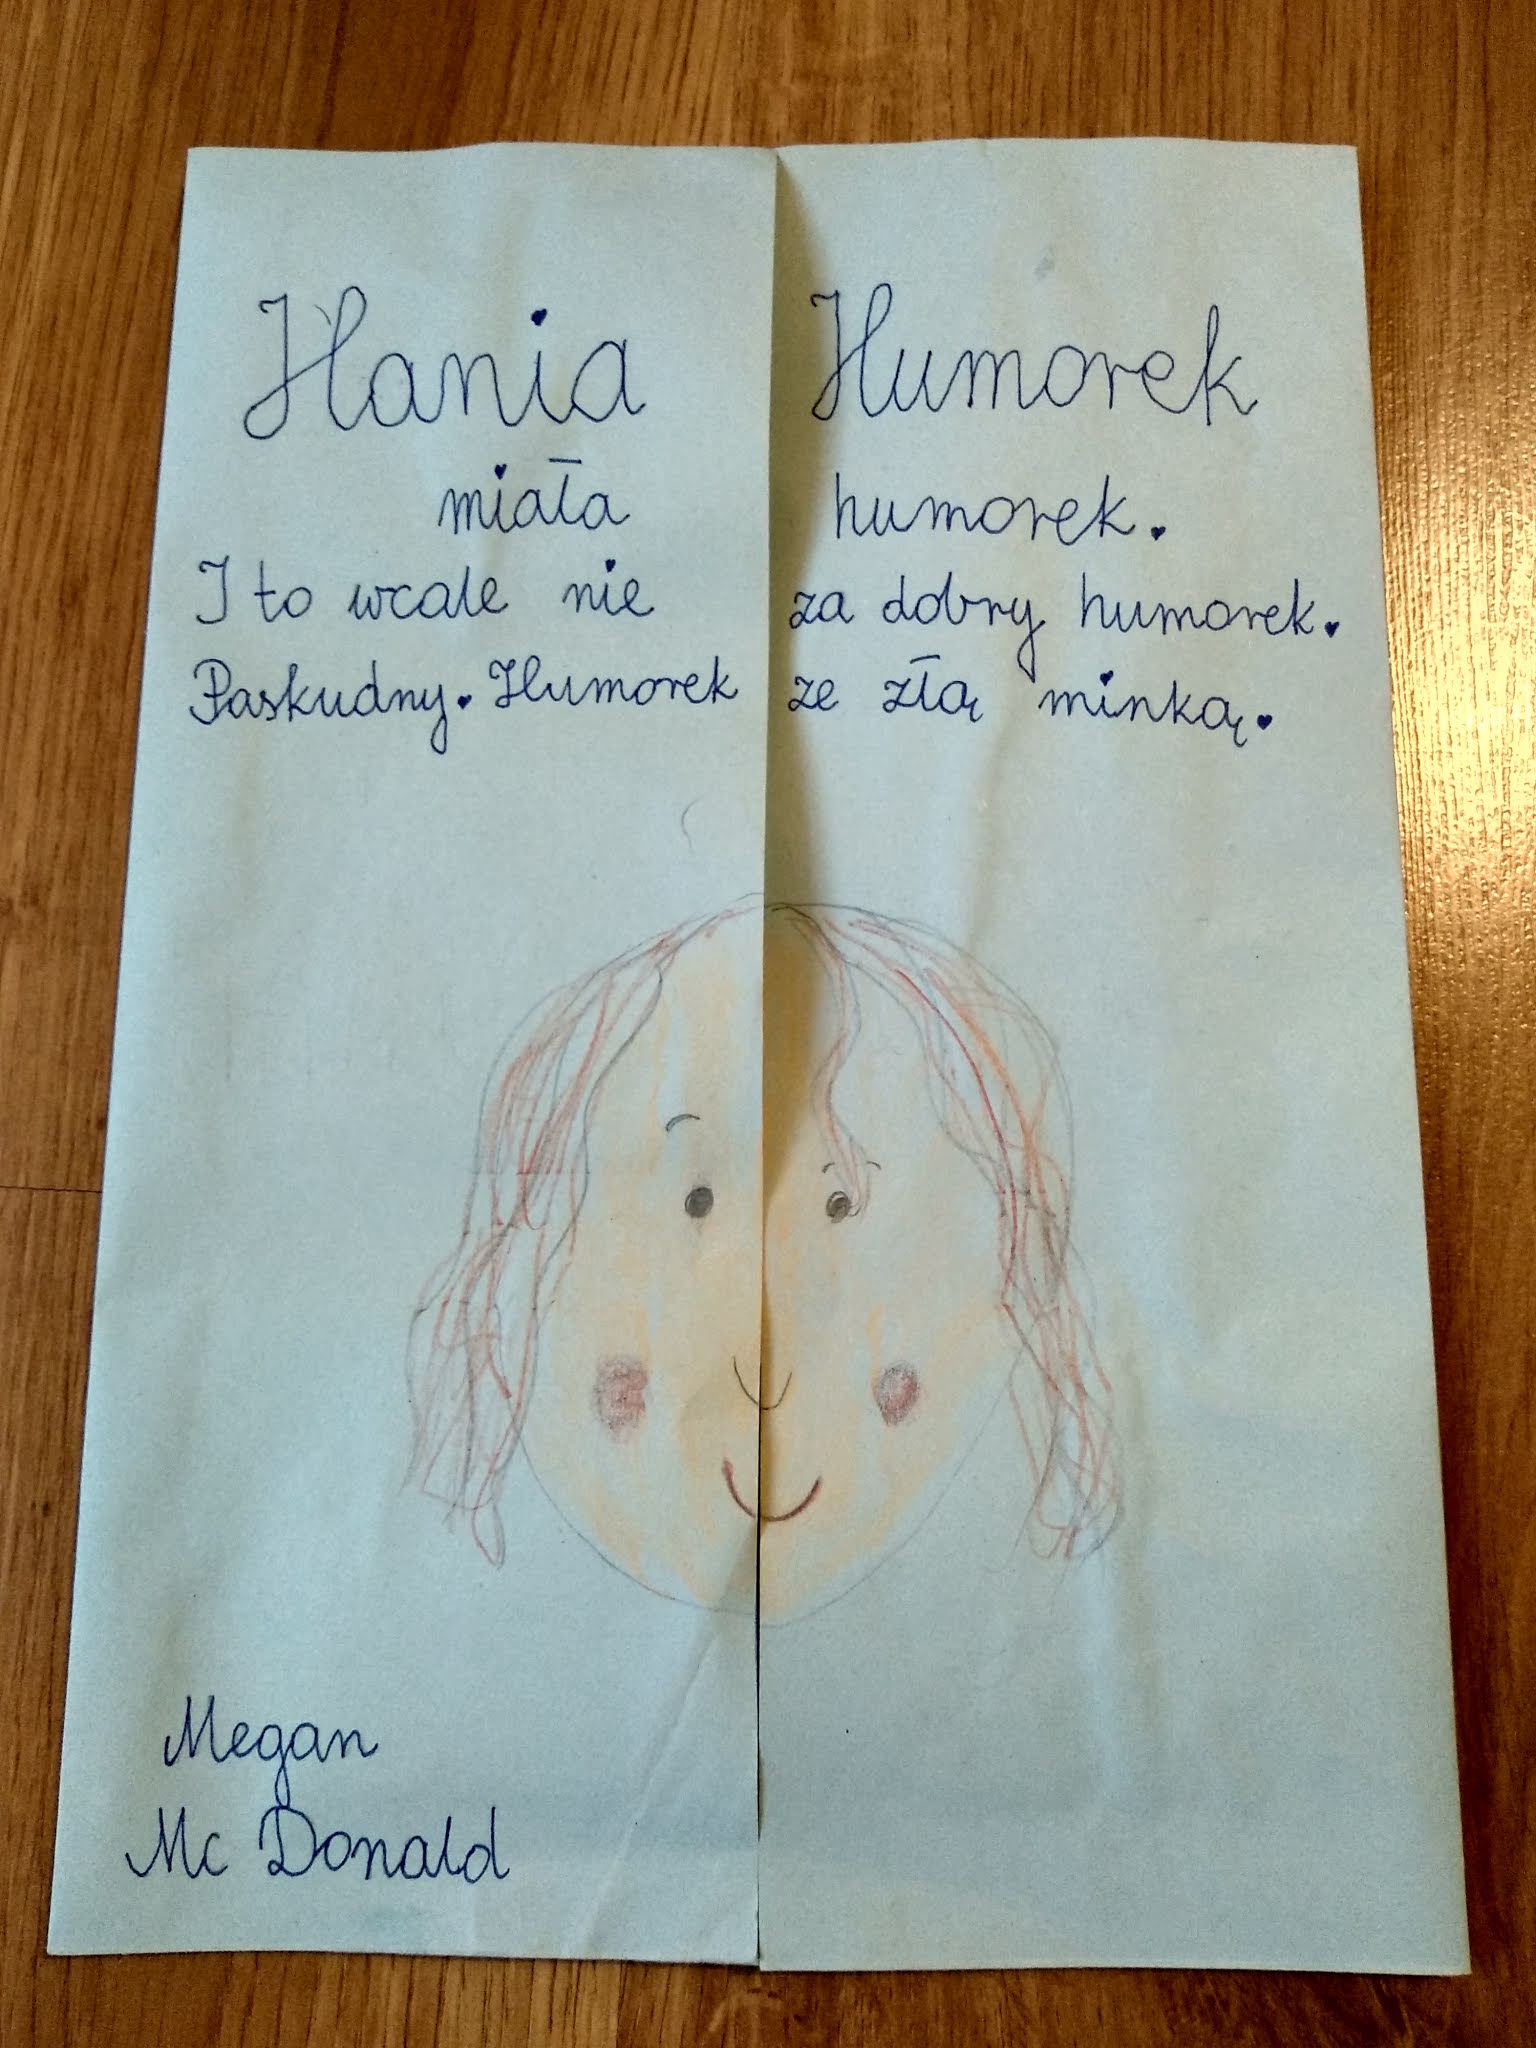 Hania Humorek
miała humorek.
I to wcale nie za dobry humorek.
Paskudny. Humorek ze złą minką.
Megan
Mc Donald